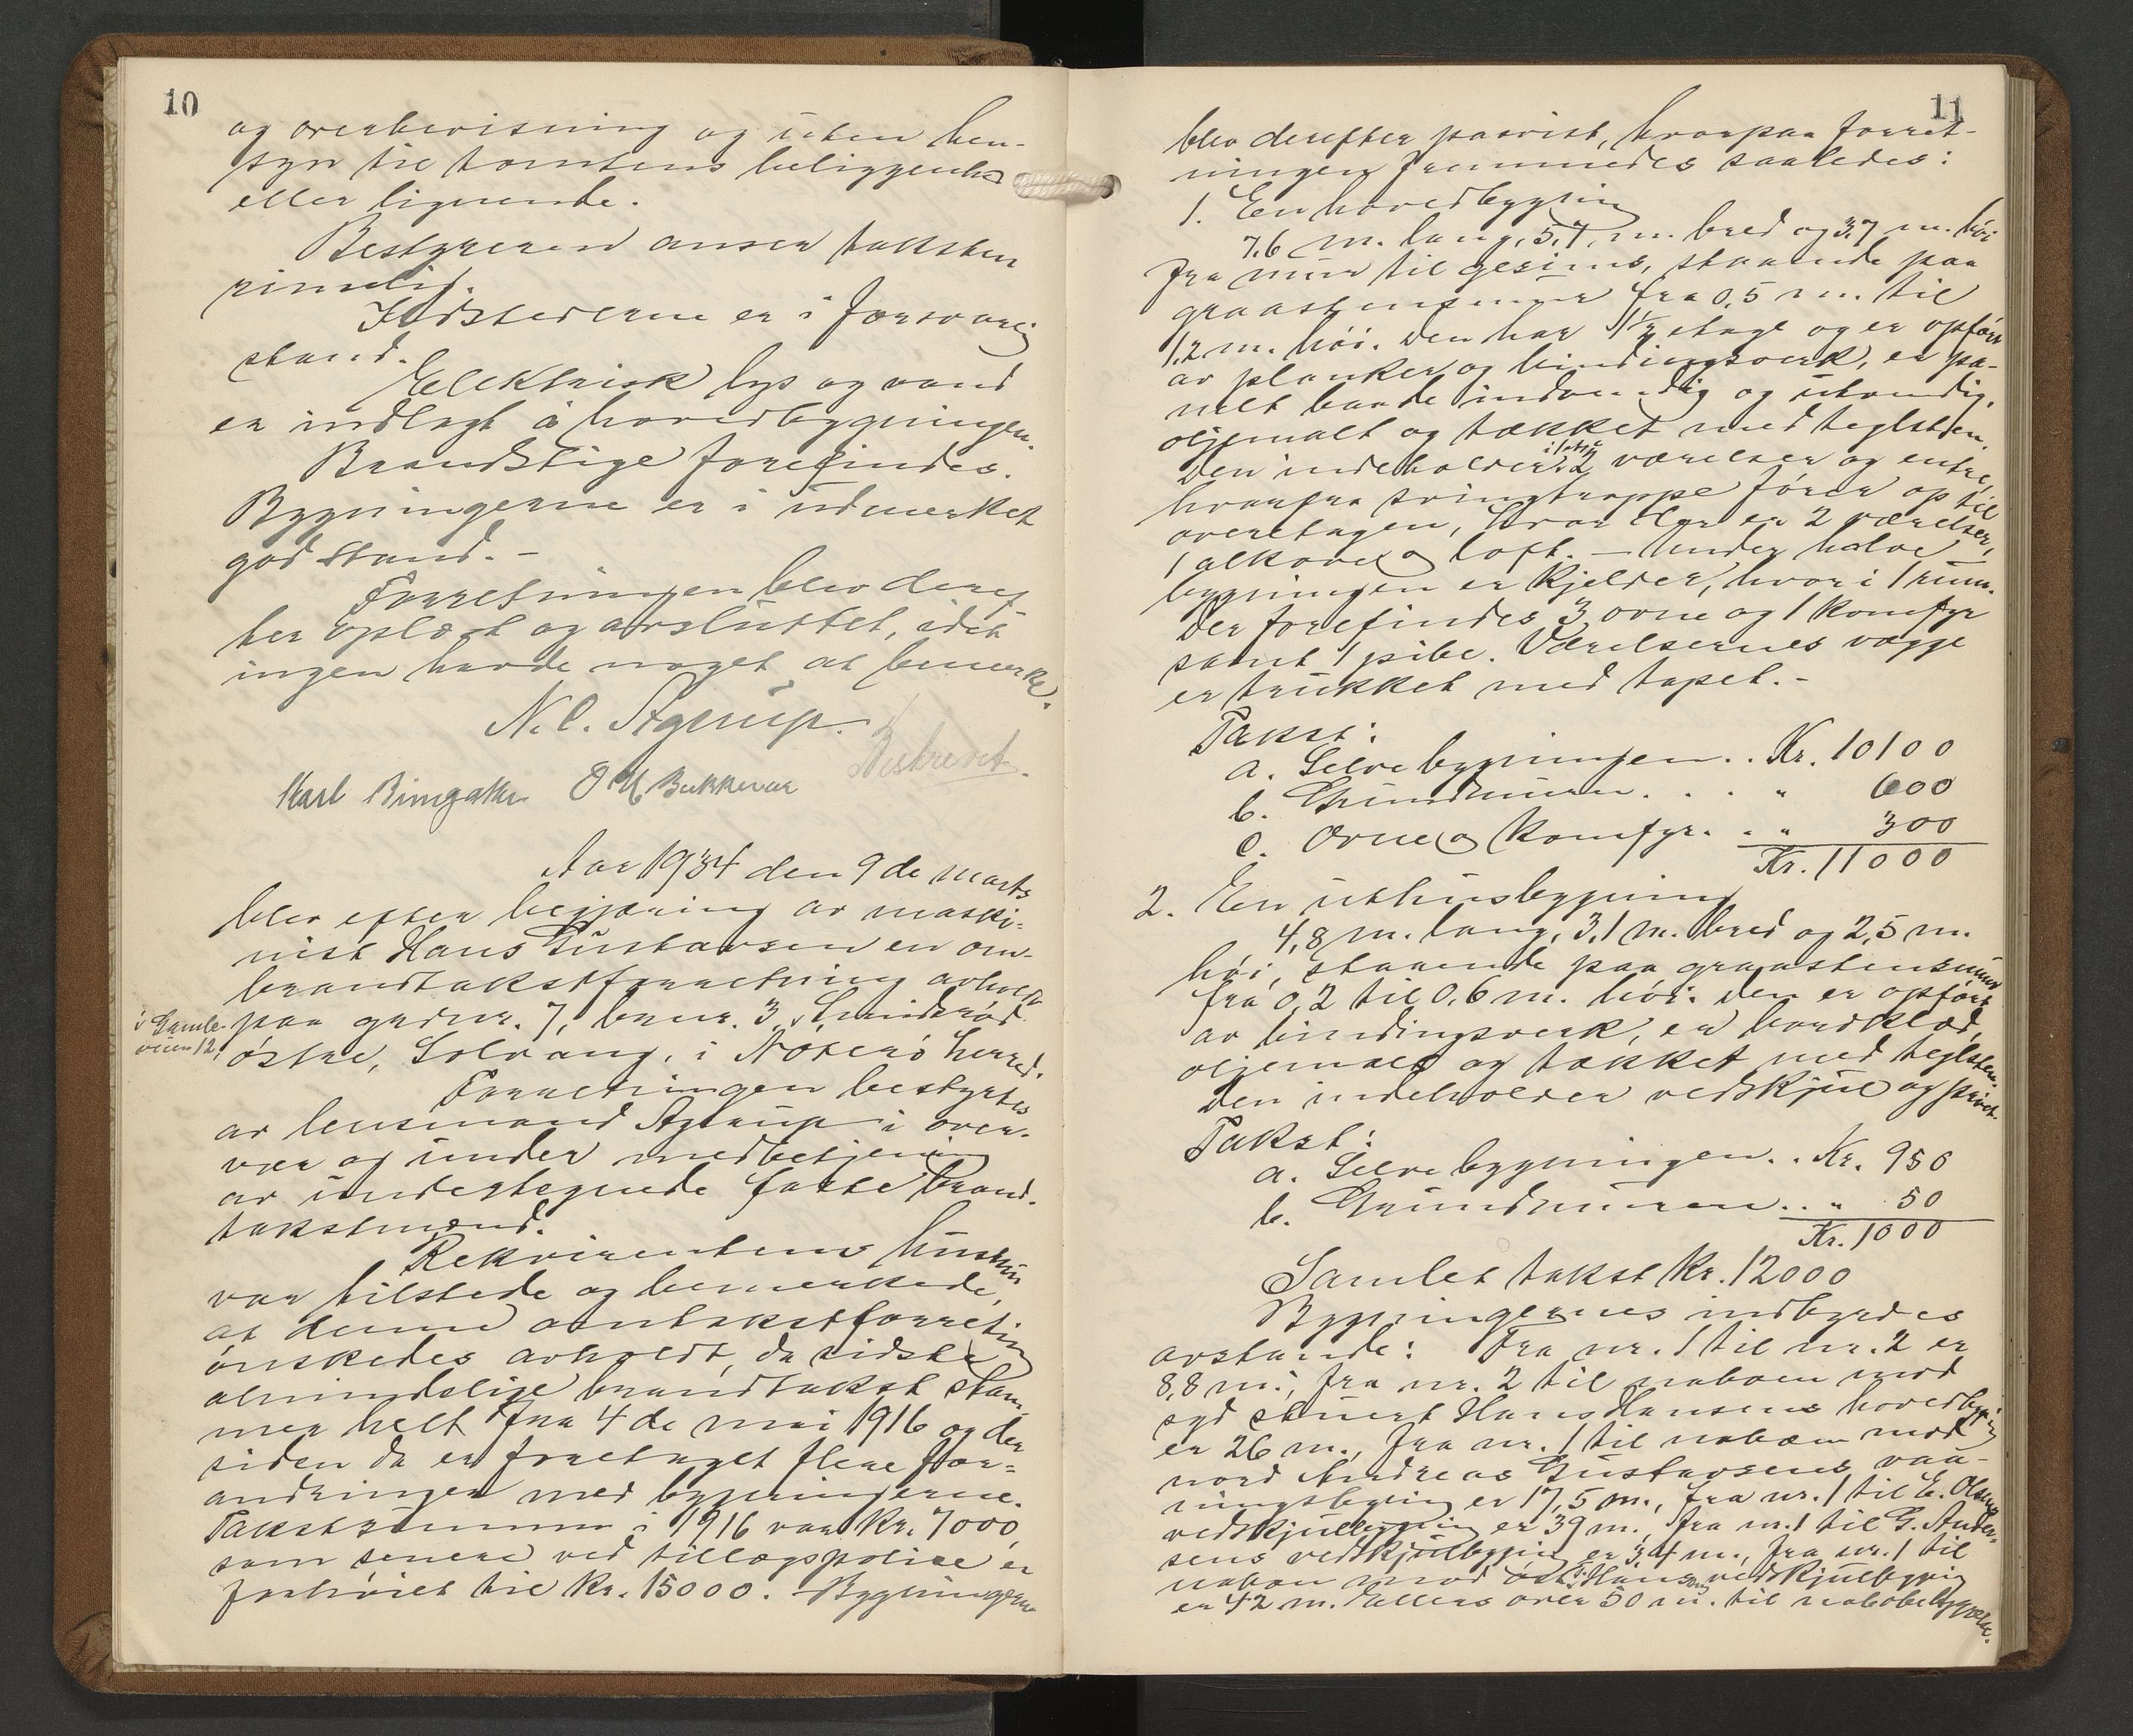 10
og overbevisning og uten hen-
syn til tomtens beliggenhed
eller lignende.
Bestyreren anser taksten
rimelig.
Ildstederne er i forsvarlig
stand.
Elektrisk lys og vand
er indlagt i hovedbygningen.
Brandstige forefindes.
Bygningerne er i udmerket
god stand. -
Forretningen blev deref-
ter oplæst og avsluttet, idet
ingen havde noget at bemerke.
N. C. Agerup.
Beskrevet.
Karl O M Bekkevar
Aar 1934 den 9de marts
blev efter begjæring av maski-
nist Hans Gustavsen en om-
brandtakstforretning avholdt
paa gardnr. 7, brnr. 3, Smidsrød
i Gamle-
veien 12,
østre, Solvang, i Nøterø herred.
Forretningen bestyrtes
av lensmand Agerup i over-
vær og under medbetjening
av undertegnede faste brand-
takstmænd.
Rekvirentens hustru
var tilstede og bemerkede,
at denne omtakstforretning
ønskedes avholdt, da sidste
almindelige brandtakst stam-
mer helt fra 4de mai 1916 og der
siden da er foretaget flere for-
andringer med bygningerne.
Takstsummen i 1916 var kr. 7000,
som senere ved tillægspolise er
forhøiet til kr. 15000. - Bygningerne
11
blev derefter paavist, hvorpaa forret-
ningen fremmedes saaledes:
1. En hovedbygning
7,6 m. lang, 5,7 m. bred og 3,7 m. høi
fra mur til gesims, staaende paa
graastensmur fra 0,5 m. til
1,2 m. høi. Den har 1½ etage og er opført
av planker og bindingsverk, er pa-
nelt baade indvendig og utvendig,
oljemalt og tækket med teglsten.
Den indeholder i 1ste 2 værelser og entre,
hvorfra svingtrappe fører op til
overetagen, hvor der er 2 værelser,
1 alkove og loft. - Under halve
bygningen er kjelder, hvor i 1 rum.
Der forefindes 3 ovne og 1 komfyr
samt 1 pibe. Værelsernes vægge
er trukket med tapet. -
Takst:
a. Selve bygningen . . Kr. 10100
b. Grundmuren . . . . " 600
c. Ovne og komfyr . . " 300
Kr. 11000
2. En uthusbygning
4,8 m. lang, 3,1 m. bred og 2,5 m.
høi, staaende paa graastensmur
fra 0,2 til 0,6 m. høi. Den er opført
av bindingsverk, er bordklæd,
oljemalt og tækket med teglsten.
Den indeholder vedskjul og privet.
Takst:
a. Selve bygningen . . Kr. 950
b. Grundmuren . . " 50
Kr. 1000
Samlet takst kr. 12000
Bygningernes indbyrdes
avstande: Fra nr. 1 til nr. 2 er
8,8 m., fra nr. 2 til naboen mod
syd Hans Hansens hovedbygning
er 26 m., fra nr. 1 til naboen mod
nord Andreas Gustavsens vaa-
ningsbygning er 17,5 m., fra nr. 1 til E. Olsens
vedskjulbygning er 39 m., fra nr. 1 til G. Ander-
sens vedskjulbygning er 34 m., fra nr. 1 til
naboen mod øst vedskjulbygning
er 42 m. Ellers over 50 m. til nabobebyggelse.